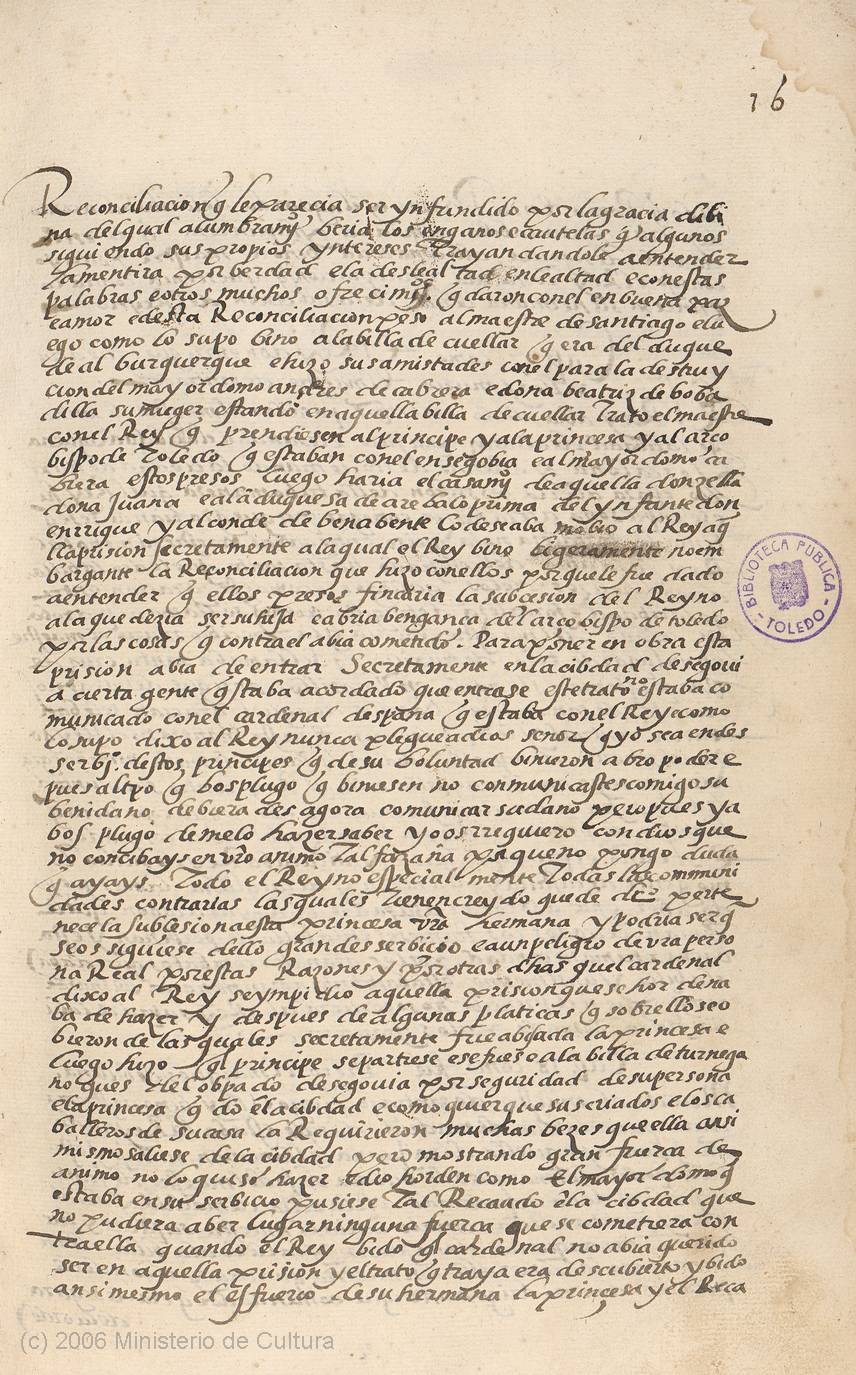 16
Reconciliacion q̃ le parecia ser ynfundido por la gracia dibi
na del qual alumbramᵒ beria los enganos e cautelas q̃ algunos
siguiendo sus propios yntereses trayan dandole a entender
la mentira por berdad e la desleal tad en lealtad e con estas
palabras e otros muchos ofrecimᵒs. q̃ daron con el en buena paz
e amor e desta Reconciliacion peso al maestre de santiago e lu
ego como lo supo bino a la billa de cuellar q̃ era del duque
de al burquerque e hizo sus amistades con el para la destruy
cion del mayordomo andres de cabrera e dona beatriz de boba
dilla su muger estando en aquella billa de cuellar trato el maestre
con el Rey q̃ prendiesen al principe y a la princesa y al arco
bispo de Toledo q̃ estaban con el en segobia e al mayordomo ca
brera estos presos luego haria el casamᵒ de aquella donzella
dona Juana e a la duquesa de arebalo prima del ynfante don
enrrique y al conde de benabente lo deseaba mobio al Rey aq̃
lla prision secretamente a la qual el Rey bino ligeramente no em
bargante la Reconciliacion que hizo con ellos porque le fue dado
a entender q̃ ellos presos fincaria la subcesion del Reyno
a la que dezia ser su hija e abria benganca del arcobispo de toledo
por las cosas q̃ contra el abia cometido. Para poner en obra esta
prision abia de entrar secretamente en la cibdad de segovi
a cierta gente q̃ staba acordado que entrase este trato estaba co
municado con el cardenal despana q̃ estaba con el Rey e como
lo supo dixo al Rey nunca plegue a dios señor q̃ yo sea en des
serbiᵒ. destos principes q̃ de su boluntad binieron a bro poder e
pues al tpo q̃ bos plugo q̃ biniesen no comunicastes comigo su
benida no debiera des agora comunicar su dano pero pues ya
bos plugo de me lo hazer saber yo os rrequiero con dios que
no concibays en vro animo tal fazaña porque no pongo duda
q̃ ayays todo el Reyno especial mente todas las communi
dades contrarias las quales tienen creydo que de drō perte
nece la subcesion a esta princesa vra hermana y podria ser q̃
se os siguiese dello grandes serbicio e aun peligro de vra perso
na Real por estas Razones y por otras dhas quel cardenal
dixo al Rey se ympidio aquella prision que se hordena
ba de hazer y despues de algunas platicas q̃ sobrello se o
bieron de las quales secretamente fue abisada la princesa e
luego hizo q̃l principe se partiese e se fuese a la billa de turuega
no ques del obpado de segovia por seguridad de su persona
e la princesa q̃ do ēla cibdad e como quier que sus criados e los ca
balleros de su casa la Requirieron muchas bezes que ella ansi
mismo saliese de la cibdad pero mostrando gran fuerca de
animo no lo quiso hazer e dio horden como el mayordomo q̃
estaba en su serbicio pusiese tal Recaudo ēla cibdad que
no pudiera aber lugar ninguna fuerca que se cometiera con
tra ella quando el Rey bido q̃l cardenal no abia querido
ser en aquella prision y el trato q̃ traya era descubierto y bido
ansimesmo el esfuerco de su hermana la princesa y el Reca
BIBLIOTECA PÚBLICA - TOLEDO -
(c) 2006 Ministerio de Cultura